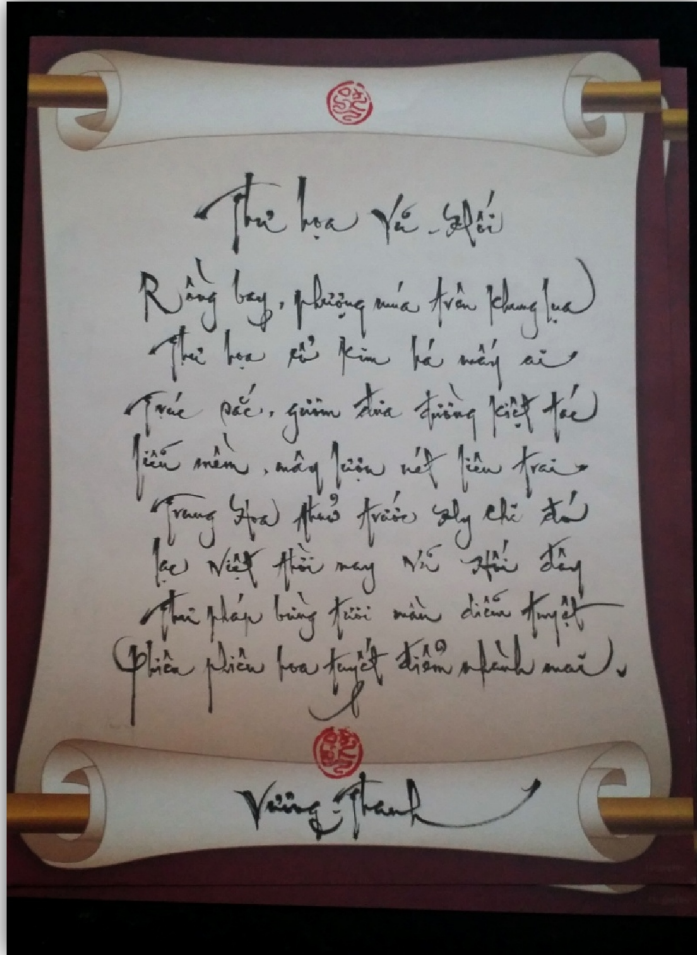 Thư họa Vũ-Hối
Rồng bay, phượng múa trên khung lụa
Thư họa cổ kim há mấy ai
Trúc sắc, gươm đưa đường kiệt tác
Liễu mềm, mây lượn nét liêu trai
Trung Hoa thuở trước Hy Chi đó
Lạc Việt thời nay Vũ Hối đây
Thư pháp bừng tươi màu diễm tuyệt
Phiên phiên hoa tuyết điểm nhành mai.
Vương-Thanh